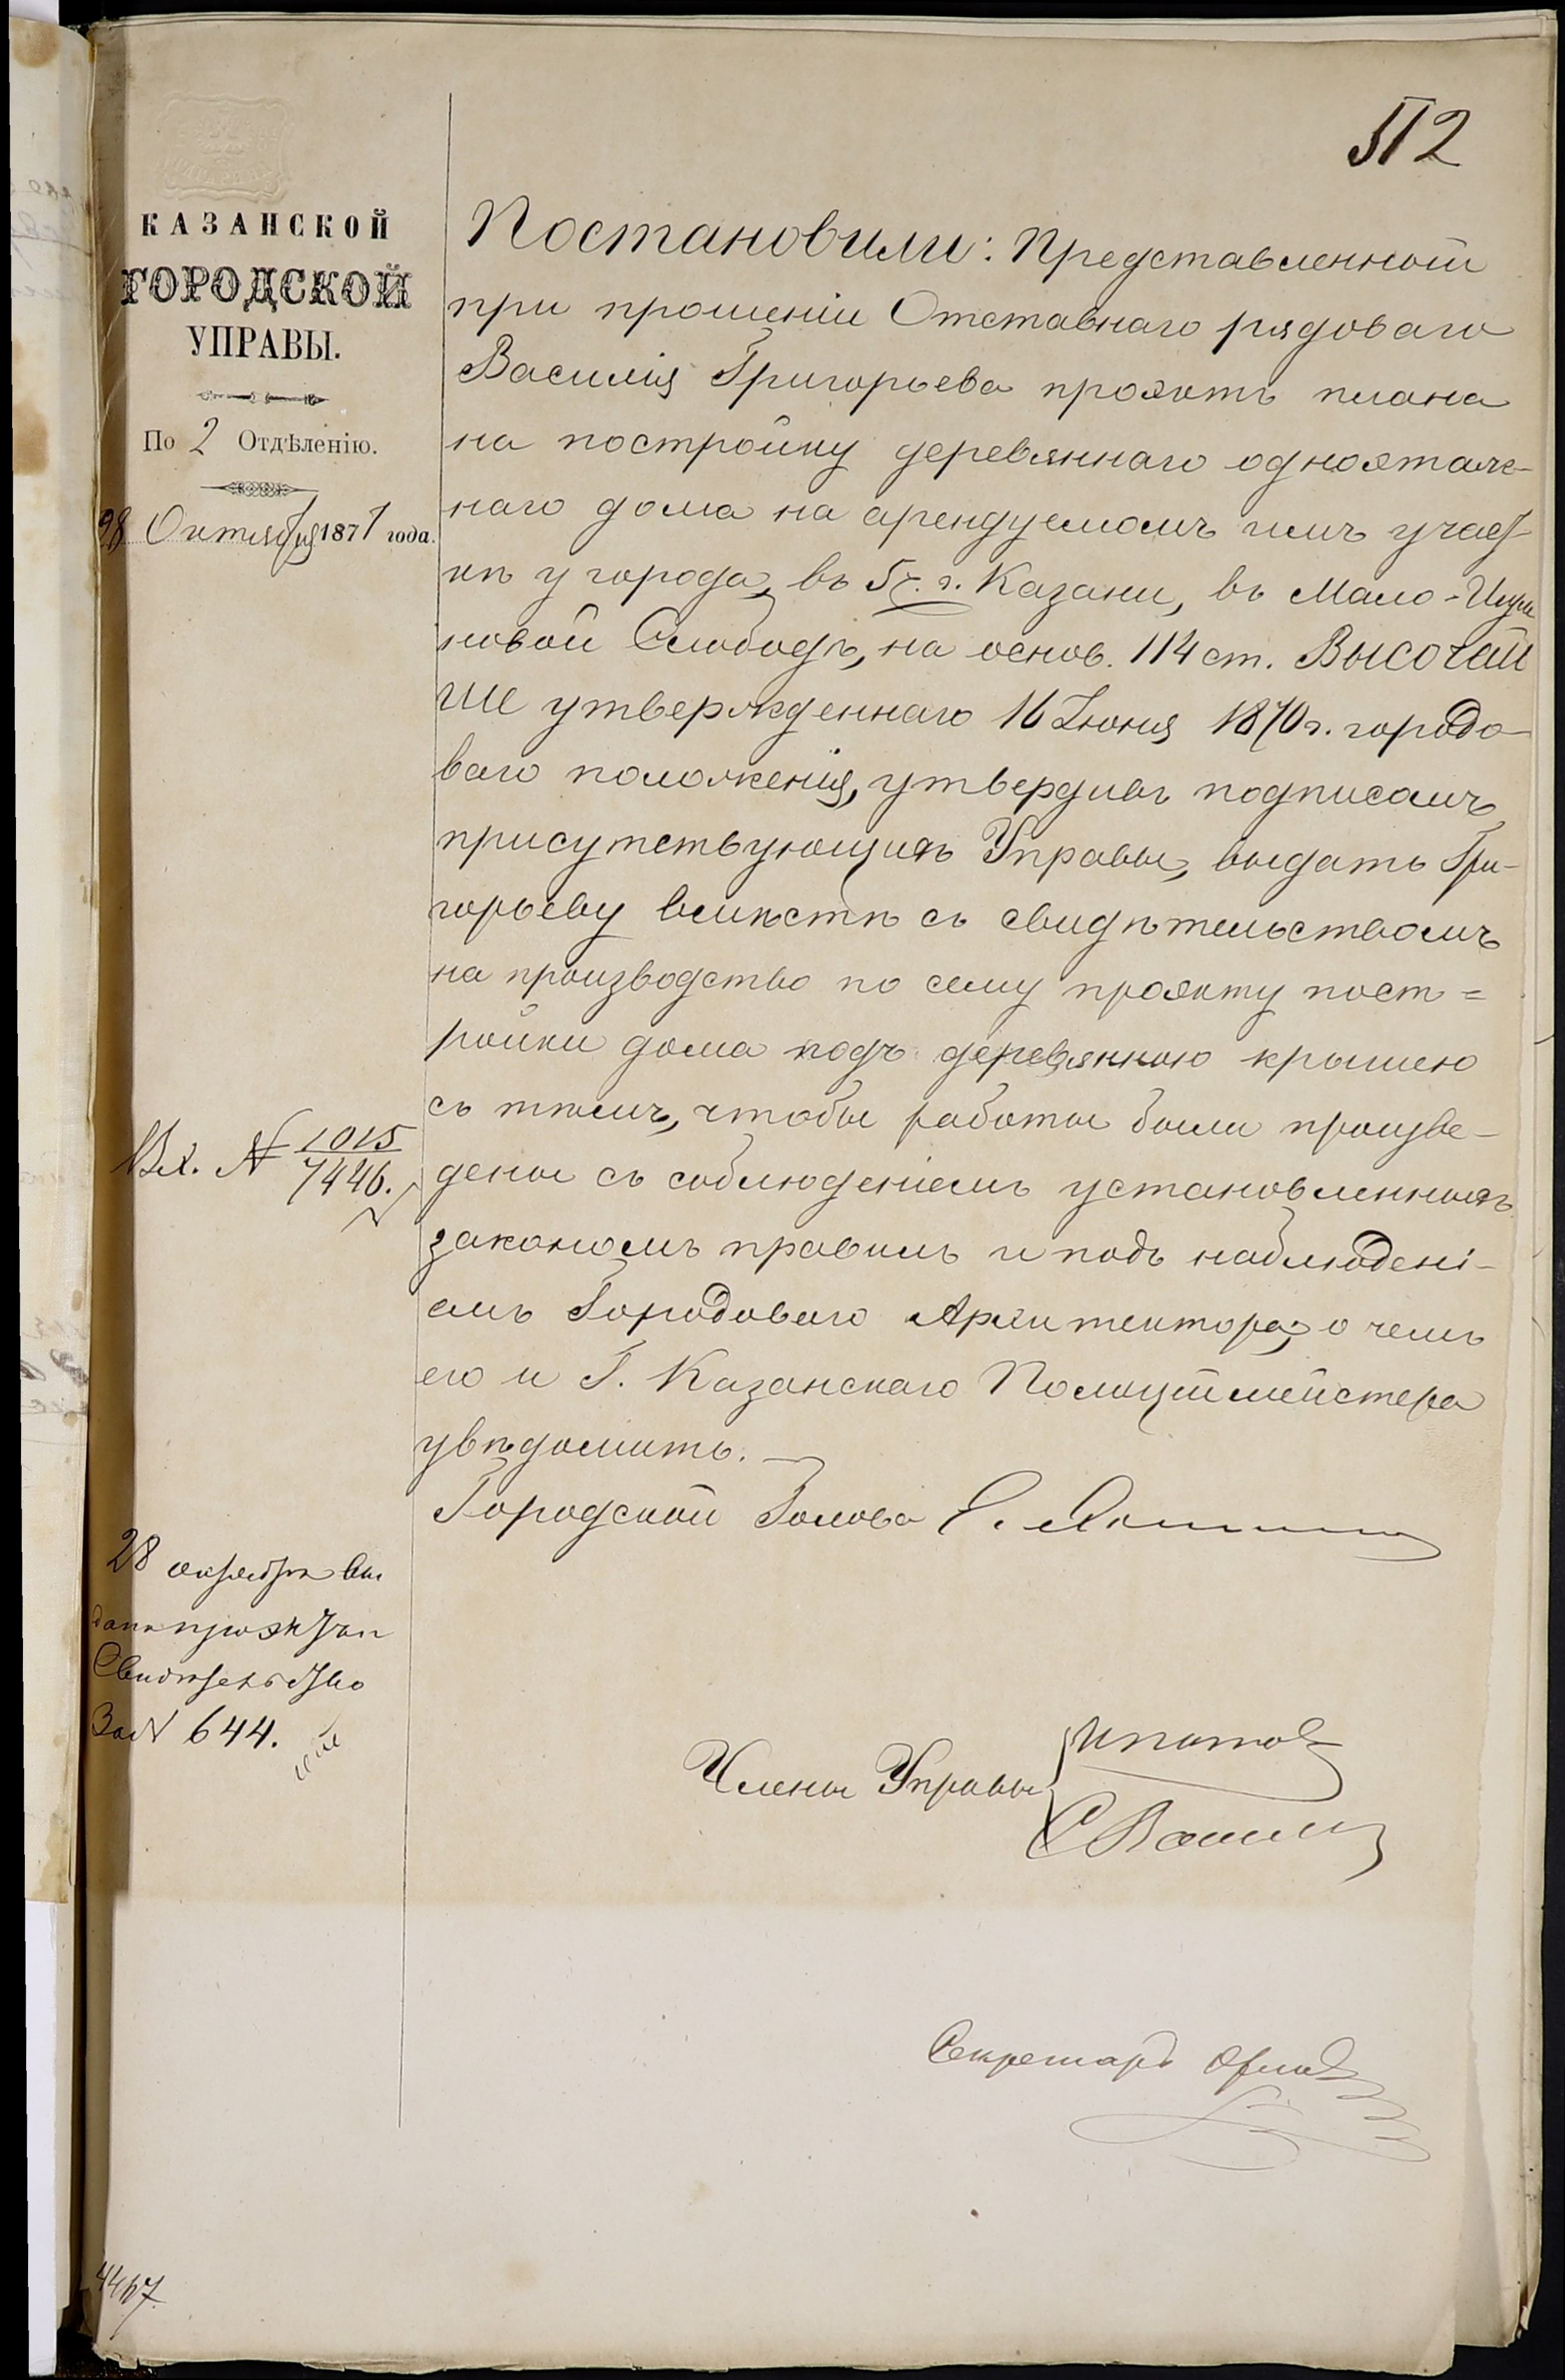 512
КАЗАНСКОЙ
ГОРОДСКОЙ
УПРАВЫ.
По 2 Отдѣленію.
28 Октября 1871 года.
Постановили: Представленный
при прошеніи Отставнаго рядоваго
Василія Григорьева проэктъ плана
на постройку деревяннаго одноэтаж-
наго дома на арендуемомъ имъ участ-
кѣ у города, въ 5 ч. г. Казани, въ Мало-Игум
новой Слободѣ, на основ. 114 ст. ВЫСОЧАЙ
ШЕ утвержденнаго 16 Іюня 1870 г. городо-
ваго положенія, утвердивъ подписомъ
присутствующихъ Управы, выдать Гри-
горьеву вмѣстѣ съ свидѣтельствомъ
на производство по сему проэкту пост=
ройки дома подъ деревянною крышею
съ тѣмъ, чтобы работы были произве-
дены съ соблюденіемъ установленныхъ
закономъ правилъ и подъ наблюдені-
емъ Городоваго Архитектора; о чемъ
его и Г. Казанскаго Полицiймейстера
увѣдомить.
Вх. № 1015
7446.
Городской Голова Е.
28 октября вы
дана проэктъ и
Свидѣтельство
За № 644.
Члены Управы
Ипатов
С
Секретарь Орлов